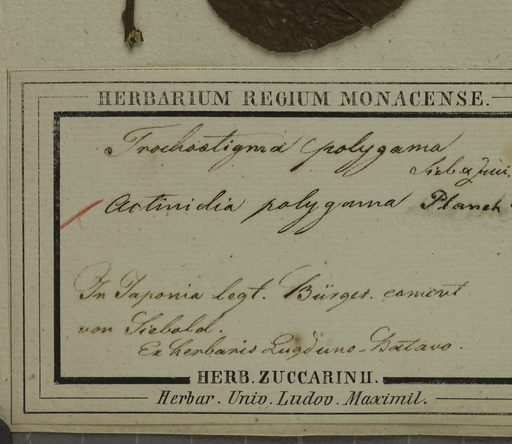 HERBARIUM REGIUM MONACENSE.
Trochostigma polygama
Sieb & Zucc.
Actinidia polygama Planch
In Japonia legt. Bürger. comm̃t
von Siebold.
Ex herbario Lugduno-Batavo.
HERB. ZUCCARINII.
Herbar. Univ. Ludov. Maximil.